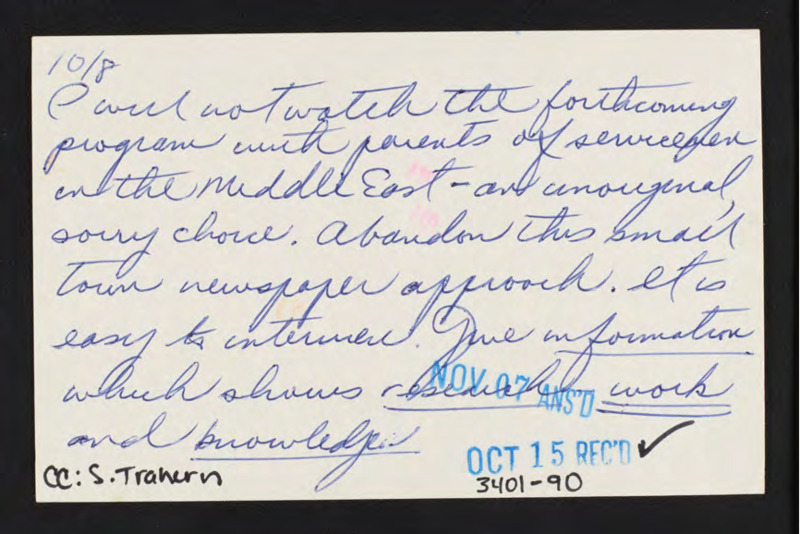 10/8
I will not watch the forthcoming
program with parents of servicemen
in the Middle East - an unoriginal,
sorry choice. Abandon this small
town newspaper approach. It is
easy to interview. Give information
which shows research, work
and knowledge
NOV 07 ANS'D
OCT 15 REC'D ✓
CC: S. Trahern
3401-90